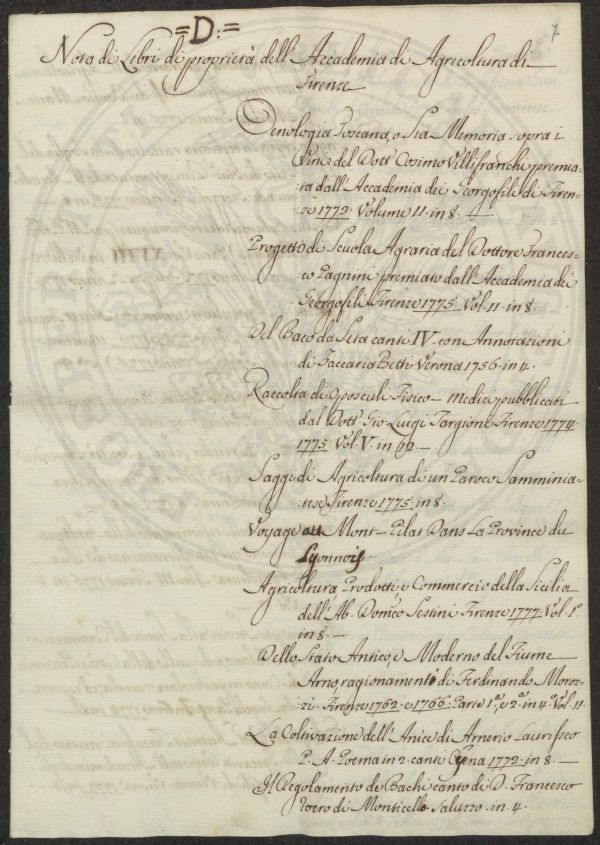 =D:=
7
Nota di Libri di proprietà dell'Accademia di Agricoltura di
Firenze
Oenologia Toscana, o sia Memoria sopra i
Vini del Dott. Cosimo Villifranchi premia-
ta dall'Accademia dei Georgofili di Firen-
ze 1772. Volume 11. in 8.
Progetto di Scuola Agraria del Dottore Frances-
co Pagnini premiato dall'Accademia dei
Georgofili Firenze 1775. Vol. 11. in 8.
Del Baco da Seta canti IV. con Annotazioni
di Zaccaria Betti Verona 1756. in 4.
Raccolta di Oposculi Fisico-medici pubblicati
dal Dott. Gio Luigi Targioni Firenze 1774.
1775. Vol. V. in 12.—
Saggi di Agricoltura di un Paroco Samminia-
tese Firenze 1775. in 8.
Voyage au Mont-Pilat Dans La Province du
Lyonnois.
Agricoltura, Prodotti, e Commercio della Sicilia
dell'Ab. Domco Sestini Firenze 1777. Vol. 1º
in 8.—
Dello Stato Antico, e Moderno del Fiume
Arno, ragionamenti di Ferdinando Moroz-
zi. Firenze 1762. e 1766. Parte 1ª, e 2ª in 4º Vol. 11.
La Coltivazione dell'Anice di Arnerio Laurisseo
P. A. Poema in 2. canti 1772. in 8.—
Il Regolamento de Bachi canto di D. Francesco
di Monticello. Saluzzo. in 4.